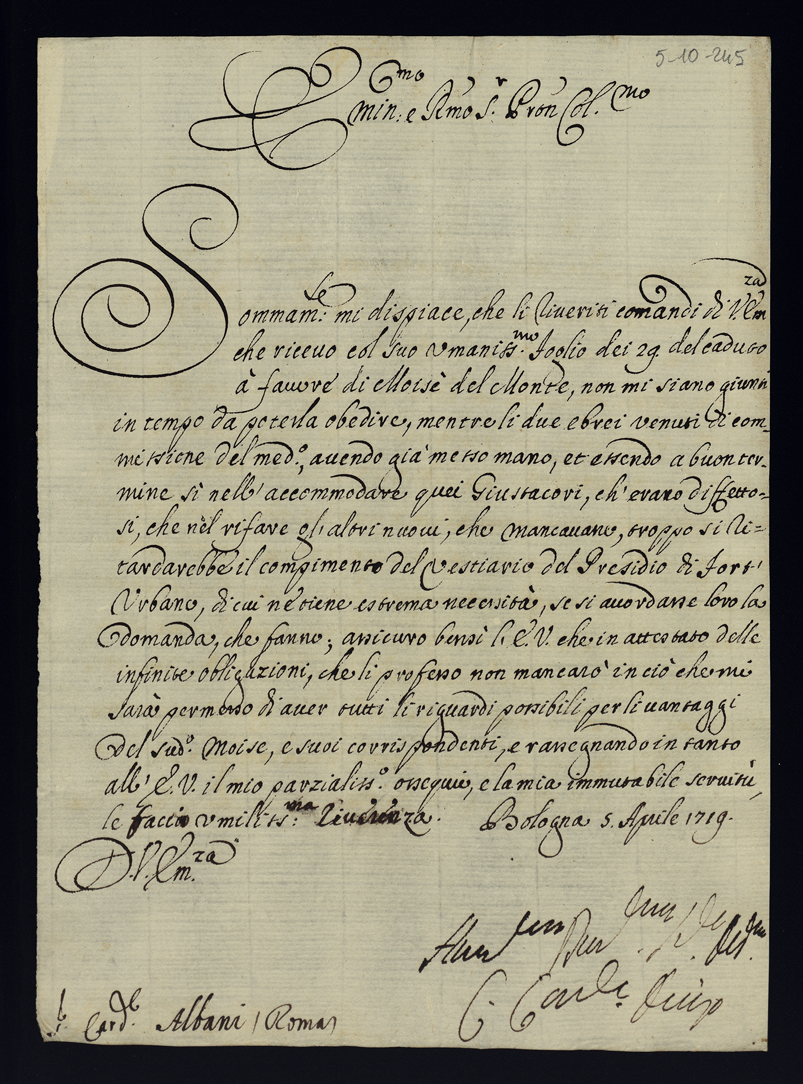 5-10-245
Emin:mo e Rmo Sr. Pron Col.mo
Sommam:te mi dispiace, che li riveriti comandi di V. Em.za
che ricevo col suo umaniss:mo foglio dei 29 del caduto
à favore di Moisè del Monte, non mi siano giunti
in tempo da poterla obedire, mentre li due ebrei venuti di com-
missione del med.o, avendo già messo mano, et essendo a buon ter-
mine sì nell'accommodare quei Giustacori, ch'erano diffetto-
si, che nel rifare gl'altri nuovi, che mancavano, troppo si ri-
tardarebbe il compimento del Vestiario del Presidio di Fort'
Urbano, di cui ne tiene estrema necessità, se si accordasse loro la
domanda, che fanno; assicuro bensì l'E.V. che in attestato delle
infinite obligazioni, che li professo non mancarò in ciò che mi
sarà permesso di aver tutti li riguardi possibili per li vantaggi
del sud.o Moise, e suoi corrispondenti, e rassegnando in tanto
all'E.V. il mio parzialiss.o ossequio, e la mia immutabile servitù,
le faccio umiliss:ma riverenza. Bologna 5. Aprile 1719.
D.V. Em.za
S.r Card.le Albani (Roma)